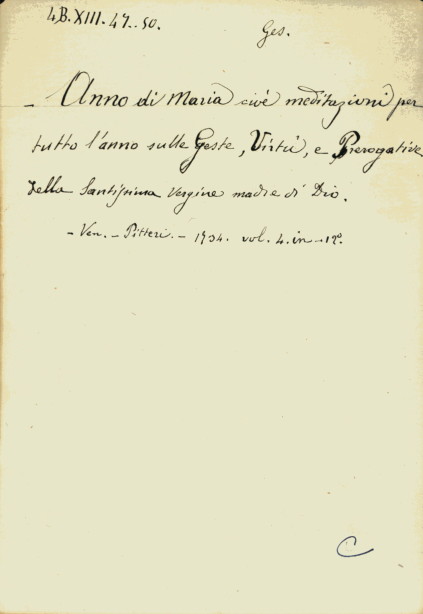 4B.XIII.47.-50.
Ges.
- Anno di Maria cioè meditazioni per
tutto l'anno sulle Geste, Virtù, e Prerogative
della Santissima Vergine madre di Dio.
- Ven. - Pitteri. - 1734. vol. 4. in - 12º.
C